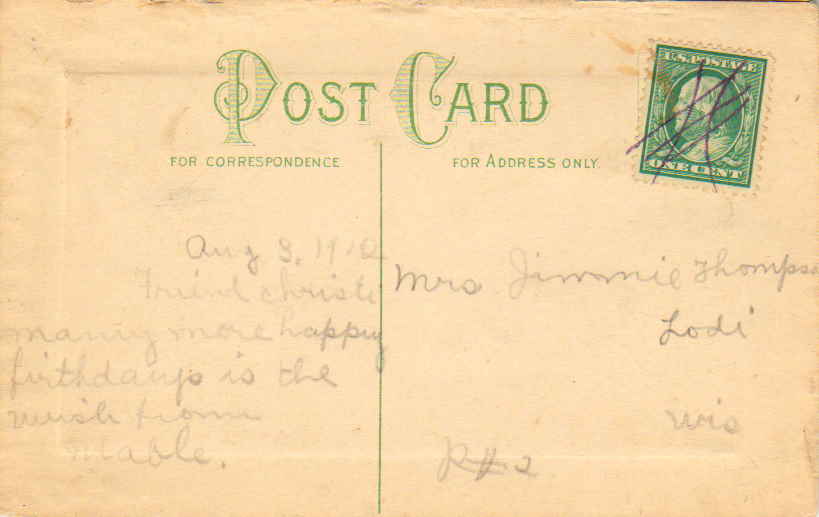 POST CARD
FOR CORRESPONDENCE
FOR ADDRESS ONLY.
U.S. POSTAGE
ONE CENT
Aug 3, 1912
Friend Christi
many more happy
birthdays is the
wish from
Mable.
Mrs Jimmie Thompso
Lodi
Wis
R#2